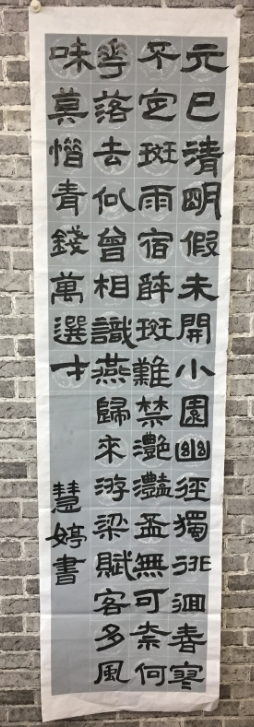 元巳清明假未開小園幽徑獨徘徊春寒
不定斑雨宿醉斑難禁灩灩盃無可柰何
華落去似曾相識燕歸來游梁賦客多風
味莫惜青錢萬選才
慧婷書